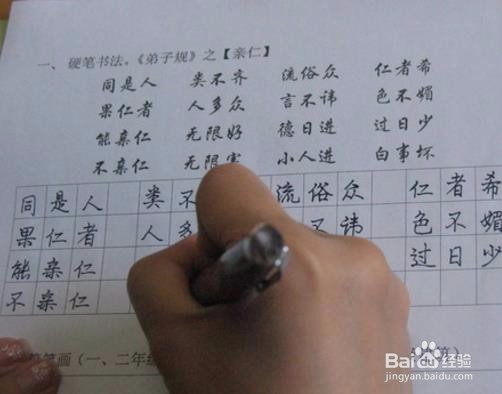 一、硬笔书法。《弟子规》之【亲仁】
同是人 类不齐 流俗众 仁者希
果仁者 人多众 言不讳 色不媚
能亲仁 无限好 德日进 过日少
不亲仁 无限害 小人进 百事坏
同是人 类不 流俗众 仁者希
果仁者 人多 不讳 色不媚
能亲仁 过日少
不亲仁
笔画(一、二年级
Baidu 经验
jingyan.baidu.com